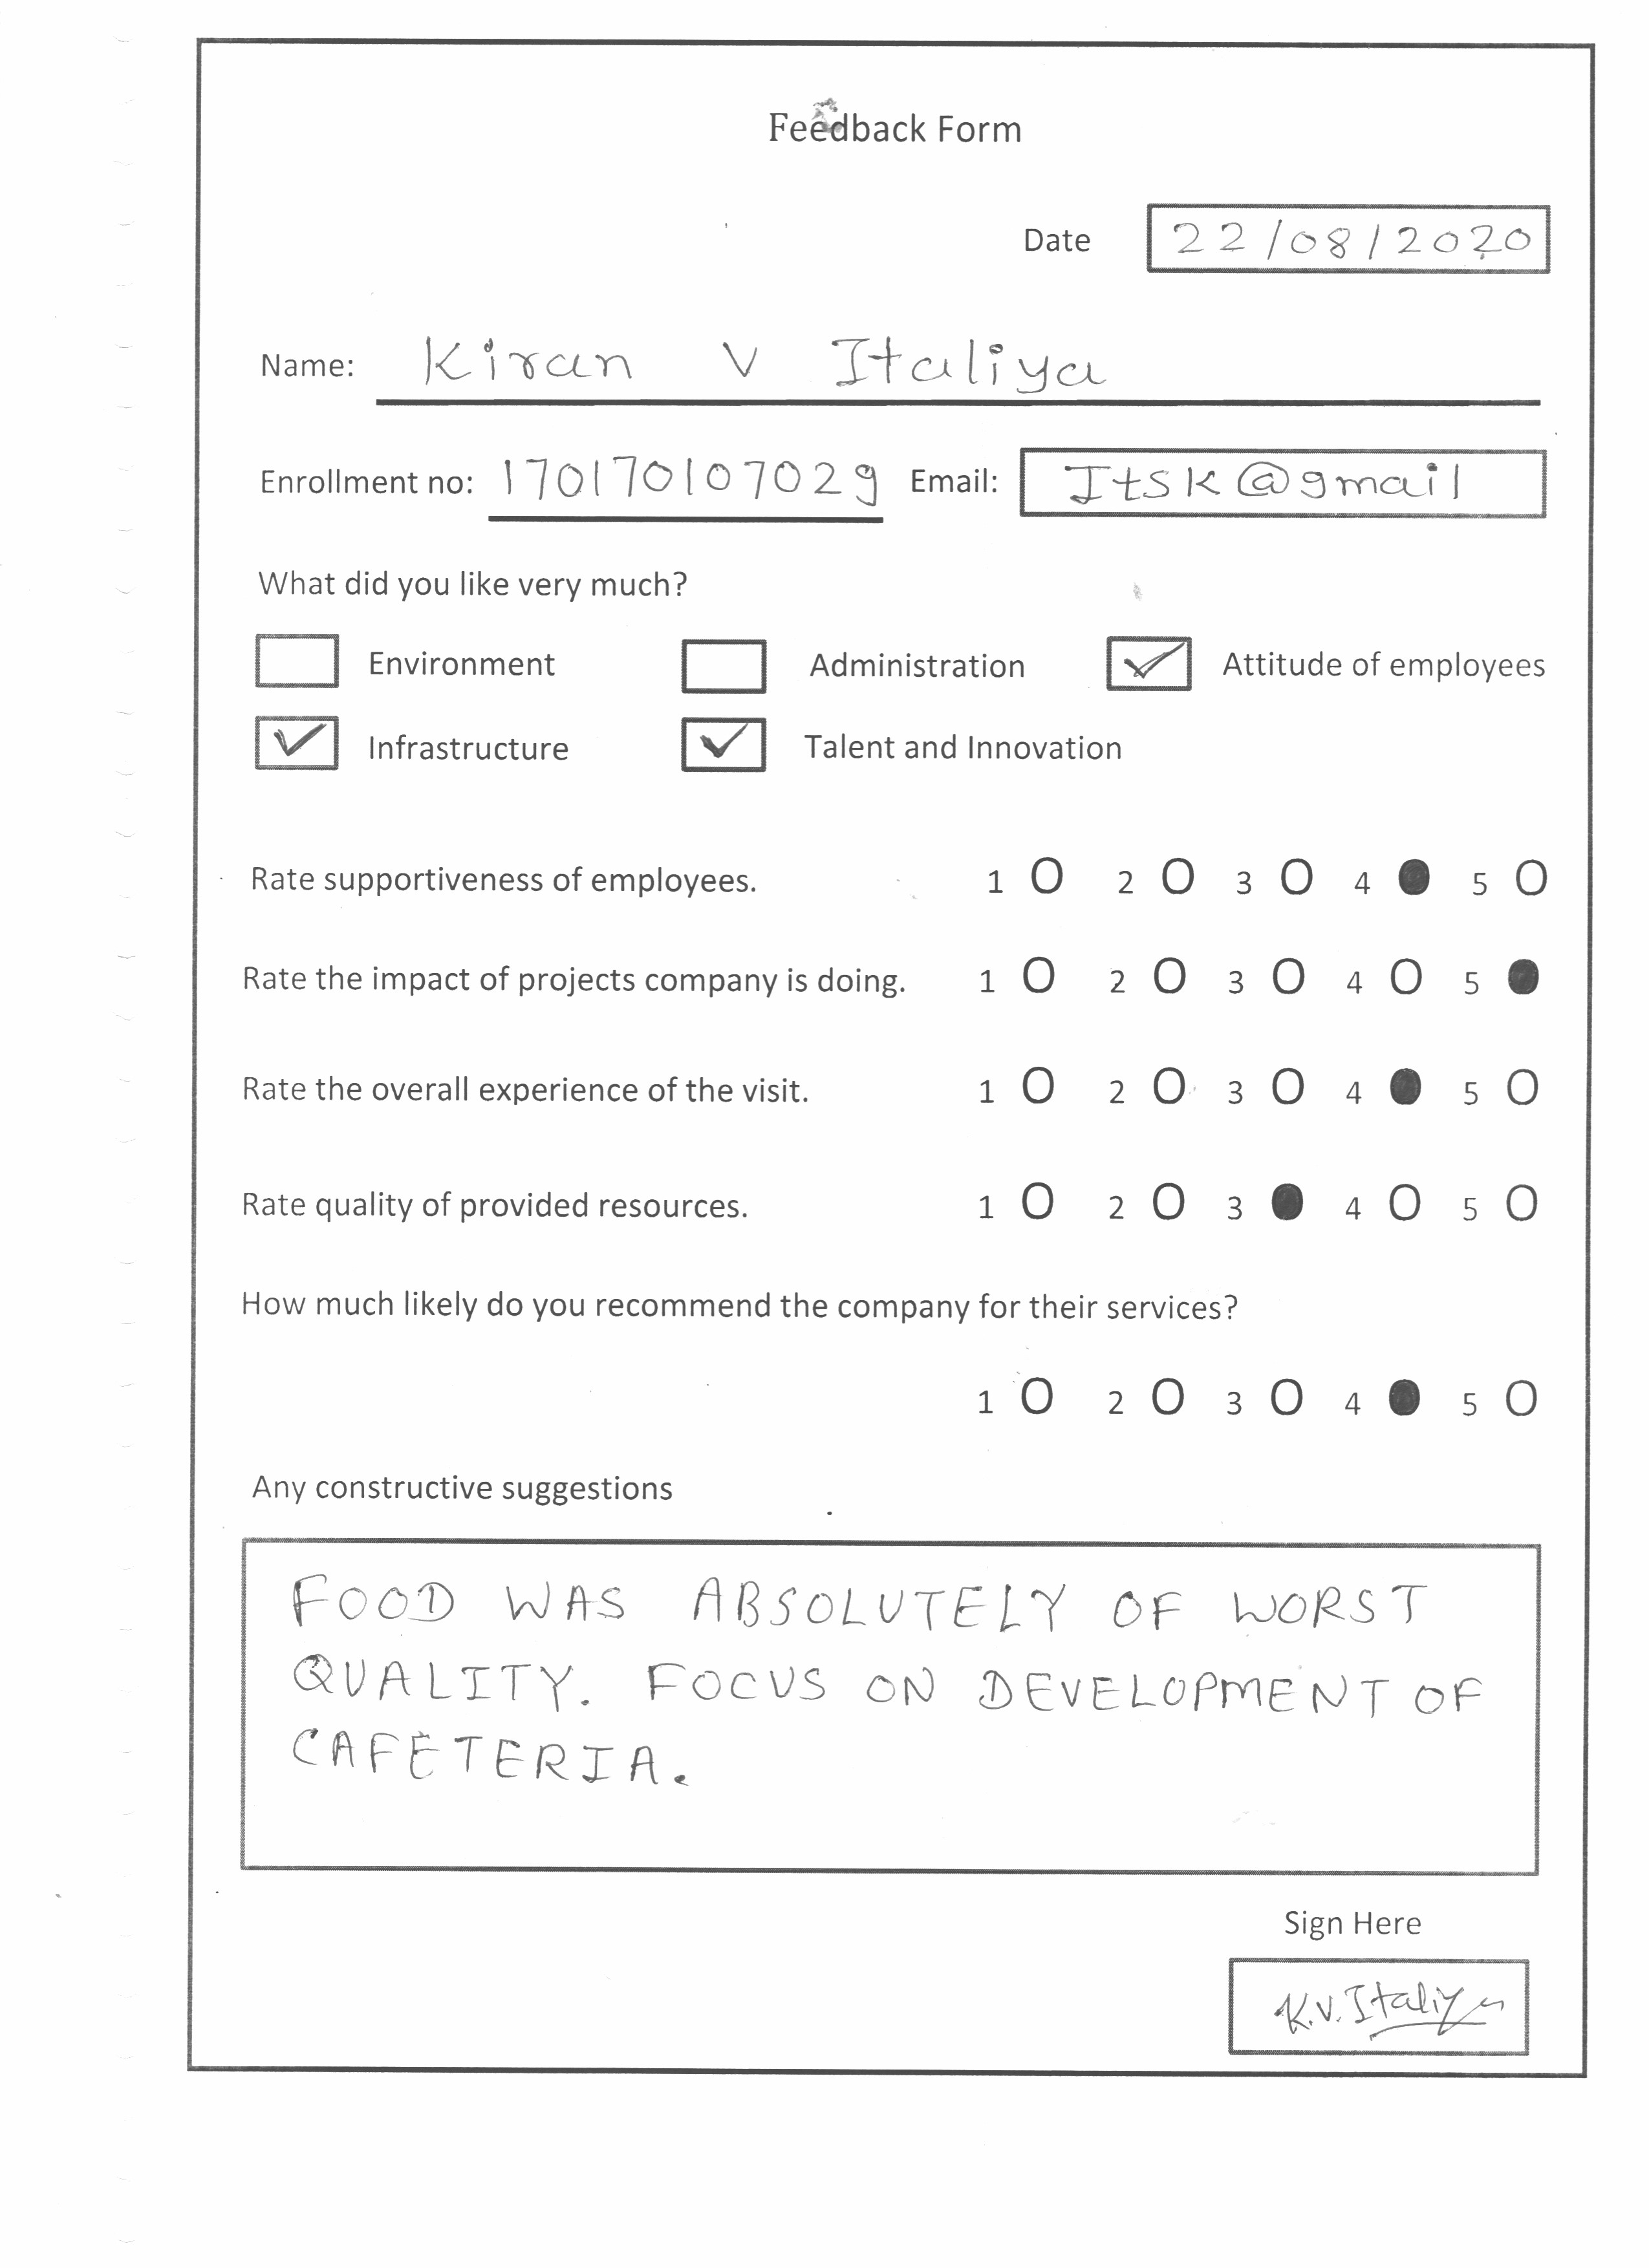 Feedback Form
Date 22/08/2020
Name: Kiran V Italiya
Enrollment no: 170170107029 Email: Itsk@gmail
What did you like very much?
Environment Administration Attitude of employees
Infrastructure Talent and Innovation
Rate supportiveness of employees. 1 2 3 4 5
Rate the impact of projects company is doing. 1 2 3 4 5
Rate the overall experience of the visit. 1 2 3 4 5
Rate quality of provided resources. 1 2 3 4 5
How much likely do you recommend the company for their services?
1 2 3 4 5
Any constructive suggestions
FOOD WAS ABSOLUTELY OF WORST
QUALITY. FOCUS ON DEVELOPMENT OF
CAFETERIA.
Sign Here
K.V. Italiya